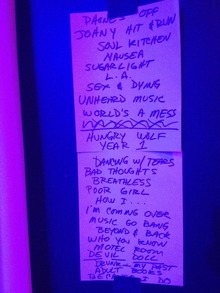 DANCE OFF
JOHNY HIT & RUN
SOUL KITCHEN
NAUSEA
SUGARLIGHT
L.A.
SEX & DYING
UNHEARD MUSIC
WORLD'S A MESS
HUNGRY WOLF
YEAR 1
DANCING W/ TEARS
BAD THOUGHTS
BREATHLESS
POOR GIRL
HOW I...
I'M COMING OVER
MUSIC GO BANG
BEYOND & BACK
WHO YOU KNOW
MOTEL ROOM
DEVIL DOLL
DRUNK IN MY PAST
ADULT BOOKS
BECAUSE I DO